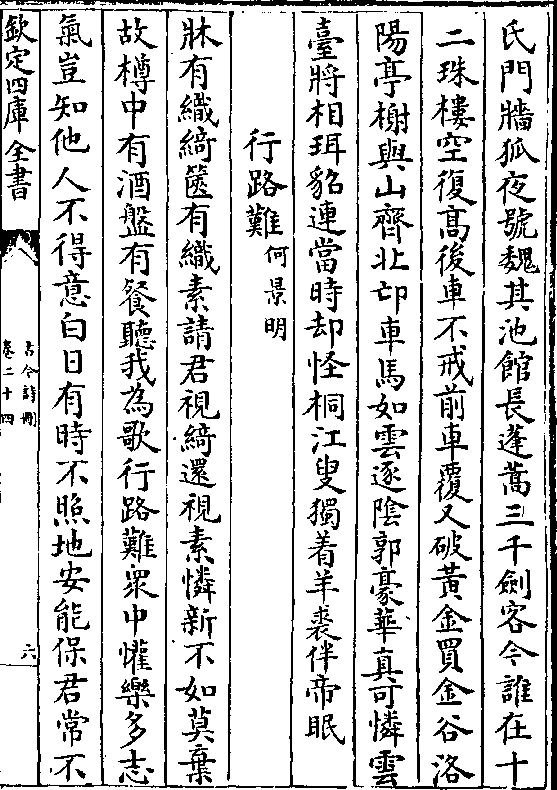 氏門牆狐夜號魏其池館長蓬蒿三千劍客今誰在十
二珠樓空復髙後車不戒前車覆又破黃金買金谷洛
陽亭榭與山齊北邙車馬如雲逐陰郭豪華真可憐雲
臺將相珥貂連當時却怪桐江叟獨着羊裘伴帝眠
行路難何景明
牀有織綺篋有織素請君視綺還視素憐新不如莫棄
故樽中有酒盤有餐聽我為歌行路難衆中懽樂多志
氣豈知他人不得意白日有時不照地安能保君常不
欽定四庫全書
古今詩刪
卷二十四
六